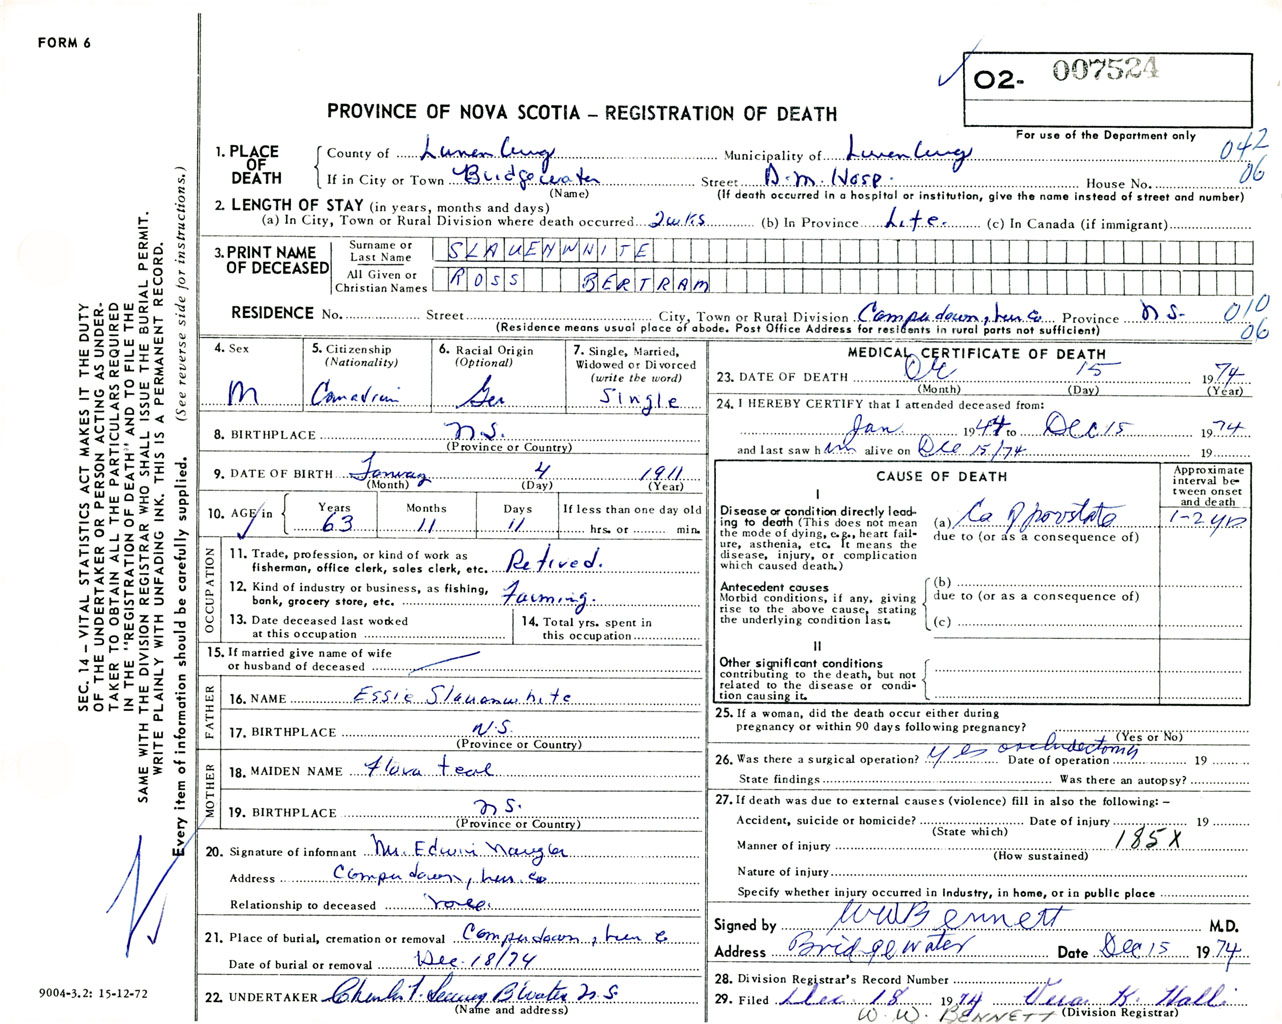 FORM 6
O2- 007524
PROVINCE OF NOVA SCOTIA – REGISTRATION OF DEATH
For use of the Department only
042
06
1. PLACE OF DEATH
County of Lunenburg Municipality of Lunenburg
If in City or Town Bridgewater Street D.M. Hosp. House No.
(Name) (If death occurred in a hospital or institution, give the name instead of street and number)
2. LENGTH OF STAY (in years, months and days)
(a) In City, Town or Rural Division where death occurred 2 wks (b) In Province Life. (c) In Canada (if immigrant)
3. PRINT NAME OF DECEASED
Surname or Last Name SLAUENWHITE
All Given or Christian Names ROSS BERTRAM
RESIDENCE No. Street City, Town or Rural Division Camperdown, Lun. Co Province N.S. 010
(Residence means usual place of abode. Post Office Address for residents in rural parts not sufficient) 06
4. Sex
M
5. Citizenship
(Nationality)
Canadian
6. Racial Origin
(Optional)
Ger
7. Single, Married,
Widowed or Divorced
(write the word)
Single
8. BIRTHPLACE N.S.
(Province or Country)
9. DATE OF BIRTH January 4 1911
(Month) (Day) (Year)
10. AGE in
Years Months Days If less than one day old
63 11 11 hrs. or min.
OCCUPATION
11. Trade, profession, or kind of work as
fisherman, office clerk, sales clerk, etc. Retired.
12. Kind of industry or business, as fishing,
bank, grocery store, etc. Farming.
13. Date deceased last worked
at this occupation
14. Total yrs. spent in
this occupation
15. If married give name of wife
or husband of deceased
FATHER
16. NAME Essie Slauenwhite
17. BIRTHPLACE N.S.
(Province or Country)
MOTHER
18. MAIDEN NAME Flora Teal
19. BIRTHPLACE N.S.
(Province or Country)
20. Signature of informant Mr. Edwin Naugler
Address Camperdown, Lun. Co
Relationship to deceased
21. Place of burial, cremation or removal Camperdown, Lun Co
Date of burial or removal Dec. 18/74
22. UNDERTAKER B'Water N.S.
(Name and address)
MEDICAL CERTIFICATE OF DEATH
23. DATE OF DEATH 15 1974
(Month) (Day) (Year)
24. I HEREBY CERTIFY that I attended deceased from:
Jan. 1944 to Dec 15 1974
and last saw him alive on Dec 15/74 19
CAUSE OF DEATH
Approximate
interval be-
tween onset
and death
I
Disease or condition directly lead-
ing to death (This does not mean
the mode of dying, e.g., heart fail-
ure, asthenia, etc. It means the
disease, injury, or complication
which caused death.)
(a) Ca of prostate 1-2 yrs
due to (or as a consequence of)
Antecedent causes
Morbid conditions, if any, giving
rise to the above cause, stating
the underlying condition last.
(b)
due to (or as a consequence of)
(c)
II
Other significant conditions
contributing to the death, but not
related to the disease or condi-
tion causing it.
25. If a woman, did the death occur either during
pregnancy or within 90 days following pregnancy?
(Yes or No)
26. Was there a surgical operation? yes Date of operation 19
State findings Was there an autopsy?
27. If death was due to external causes (violence) fill in also the following: –
Accident, suicide or homicide? Date of injury 19
(State which)
Manner of injury 185X
(How sustained)
Nature of injury
Specify whether injury occurred in Industry, in home, or in public place
Signed by WW Bennett M.D.
Address Bridgewater Date Dec 15 1974
28. Division Registrar's Record Number
29. Filed Dec 18 1974 Vera K.
W. W. BENNETT (Division Registrar)
SEC. 14 – VITAL STATISTICS ACT MAKES IT THE DUTY
OF THE UNDERTAKER OR PERSON ACTING AS UNDER-
TAKER TO OBTAIN ALL THE PARTICULARS REQUIRED
IN THE "REGISTRATION OF DEATH" AND TO FILE THE
SAME WITH THE DIVISION REGISTRAR WHO SHALL ISSUE THE BURIAL PERMIT.
WRITE PLAINLY WITH UNFADING INK. THIS IS A PERMANENT RECORD.
Every item of information should be carefully supplied. (See reverse side for instructions.)
9004-3.2: 15-12-72